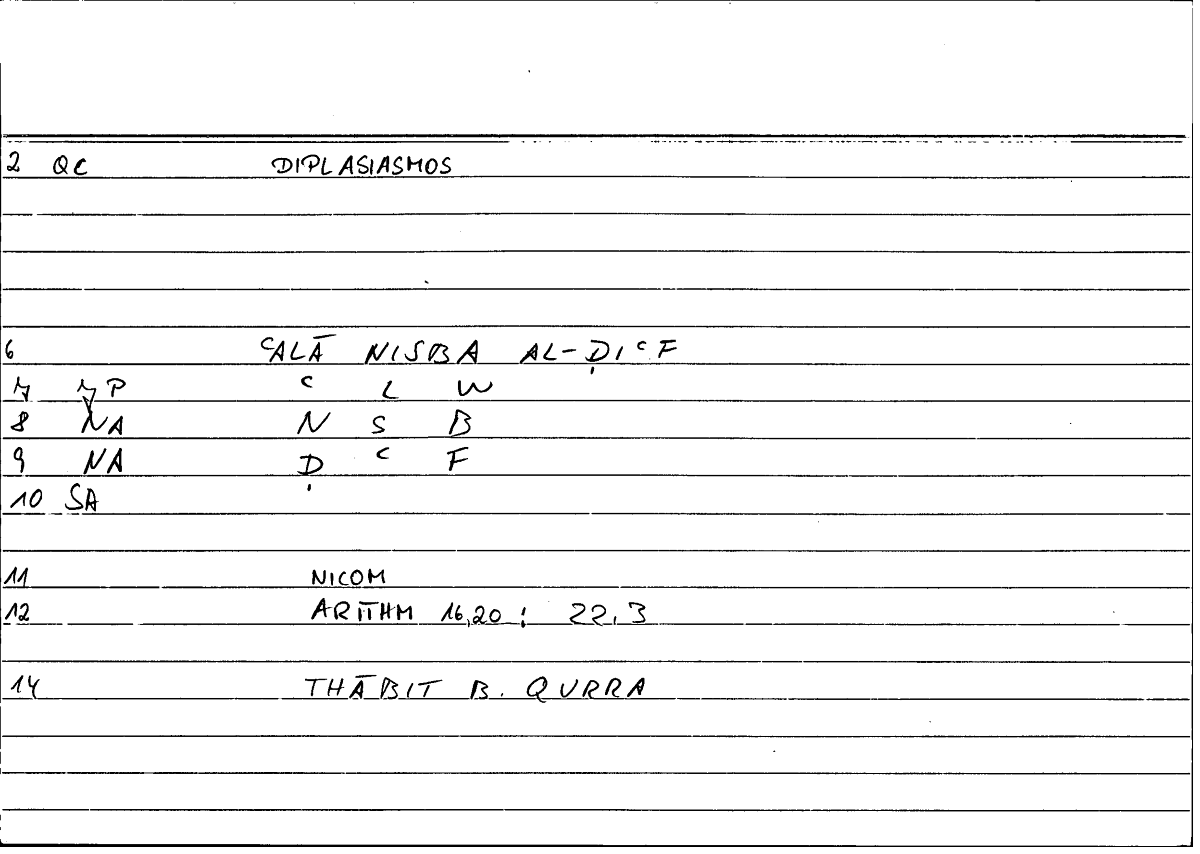 2 QC DIPLASIASMOS
6 ᶜALĀ NISBA AL-ḌIᶜF
7 P ᶜ L W
8 NA N S B
9 NA Ḍ ᶜ F
10 SA
11 NICOM
12 ARITHM 16,20 : 22,3
14 THĀBIT B. QURRA